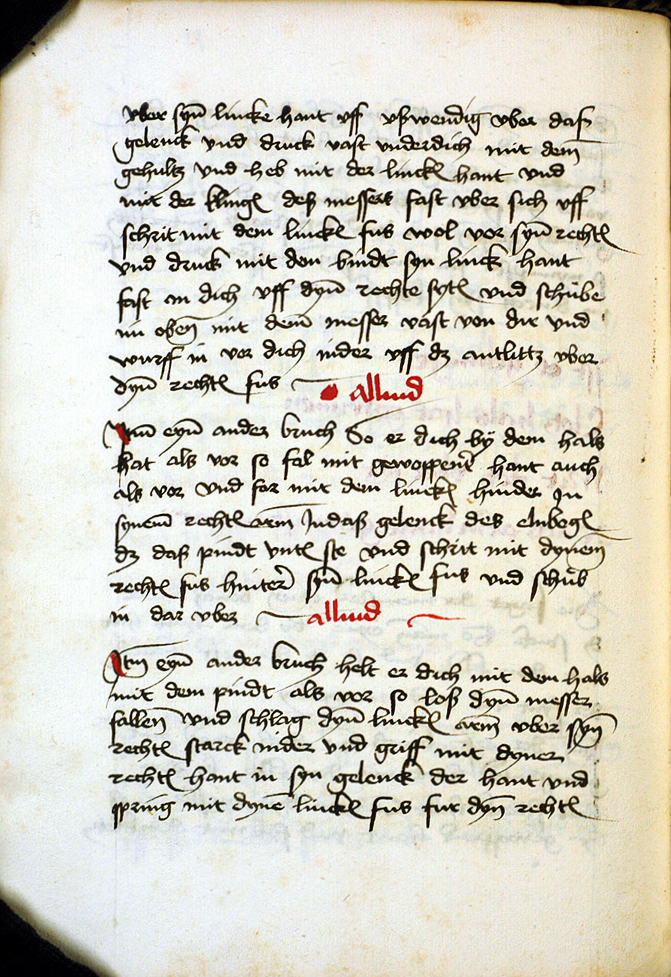 vber syn̄ lincke hant vff vßwendig vber daß
gelenck vnd druck vast vnderdich mit dem
gehultz vnd heb mit der linckē hant vnd
mit der klingē deß messers fast vber sich vff
schrit mit dem linckē fus wol vor syn̄ rechtē
vnd druck mit dem bindt syn linck hant
fast an dich vff dyn̄ rechte sytē vnd schube
in obē mit dem messer vast von dir vnd
wurff in vor dich nider vff dz antlittz vber
dyn̄ rechtē fus allind
Itm̄ eyn̄ ander bruch So er dich by dem hals
hat als vor so fal mit gewoppener hant auch
als vor vnd far mit dem linckē hinder in
synem rechtē arm In daß gelenck des elnbegē
dz daß pindt vntē ste vnd schrit mit dynem
rechtē fus hinter syn̄ linckē fus vnd schub
in dar vber allind
Itm̄ eyn̄ ander bruch helt er dich mit dem hals
mit dem pindt als vor so loß dyn̄ messer
fallen̄ vnd schlag dyn̄ linckē arm vber syn̄
rechtē starck nider vnd griff mit dyner
rechtē hant in syn gelenck der hant vnd
spring mit dynē linckē fus fur dyn̄ rechtē